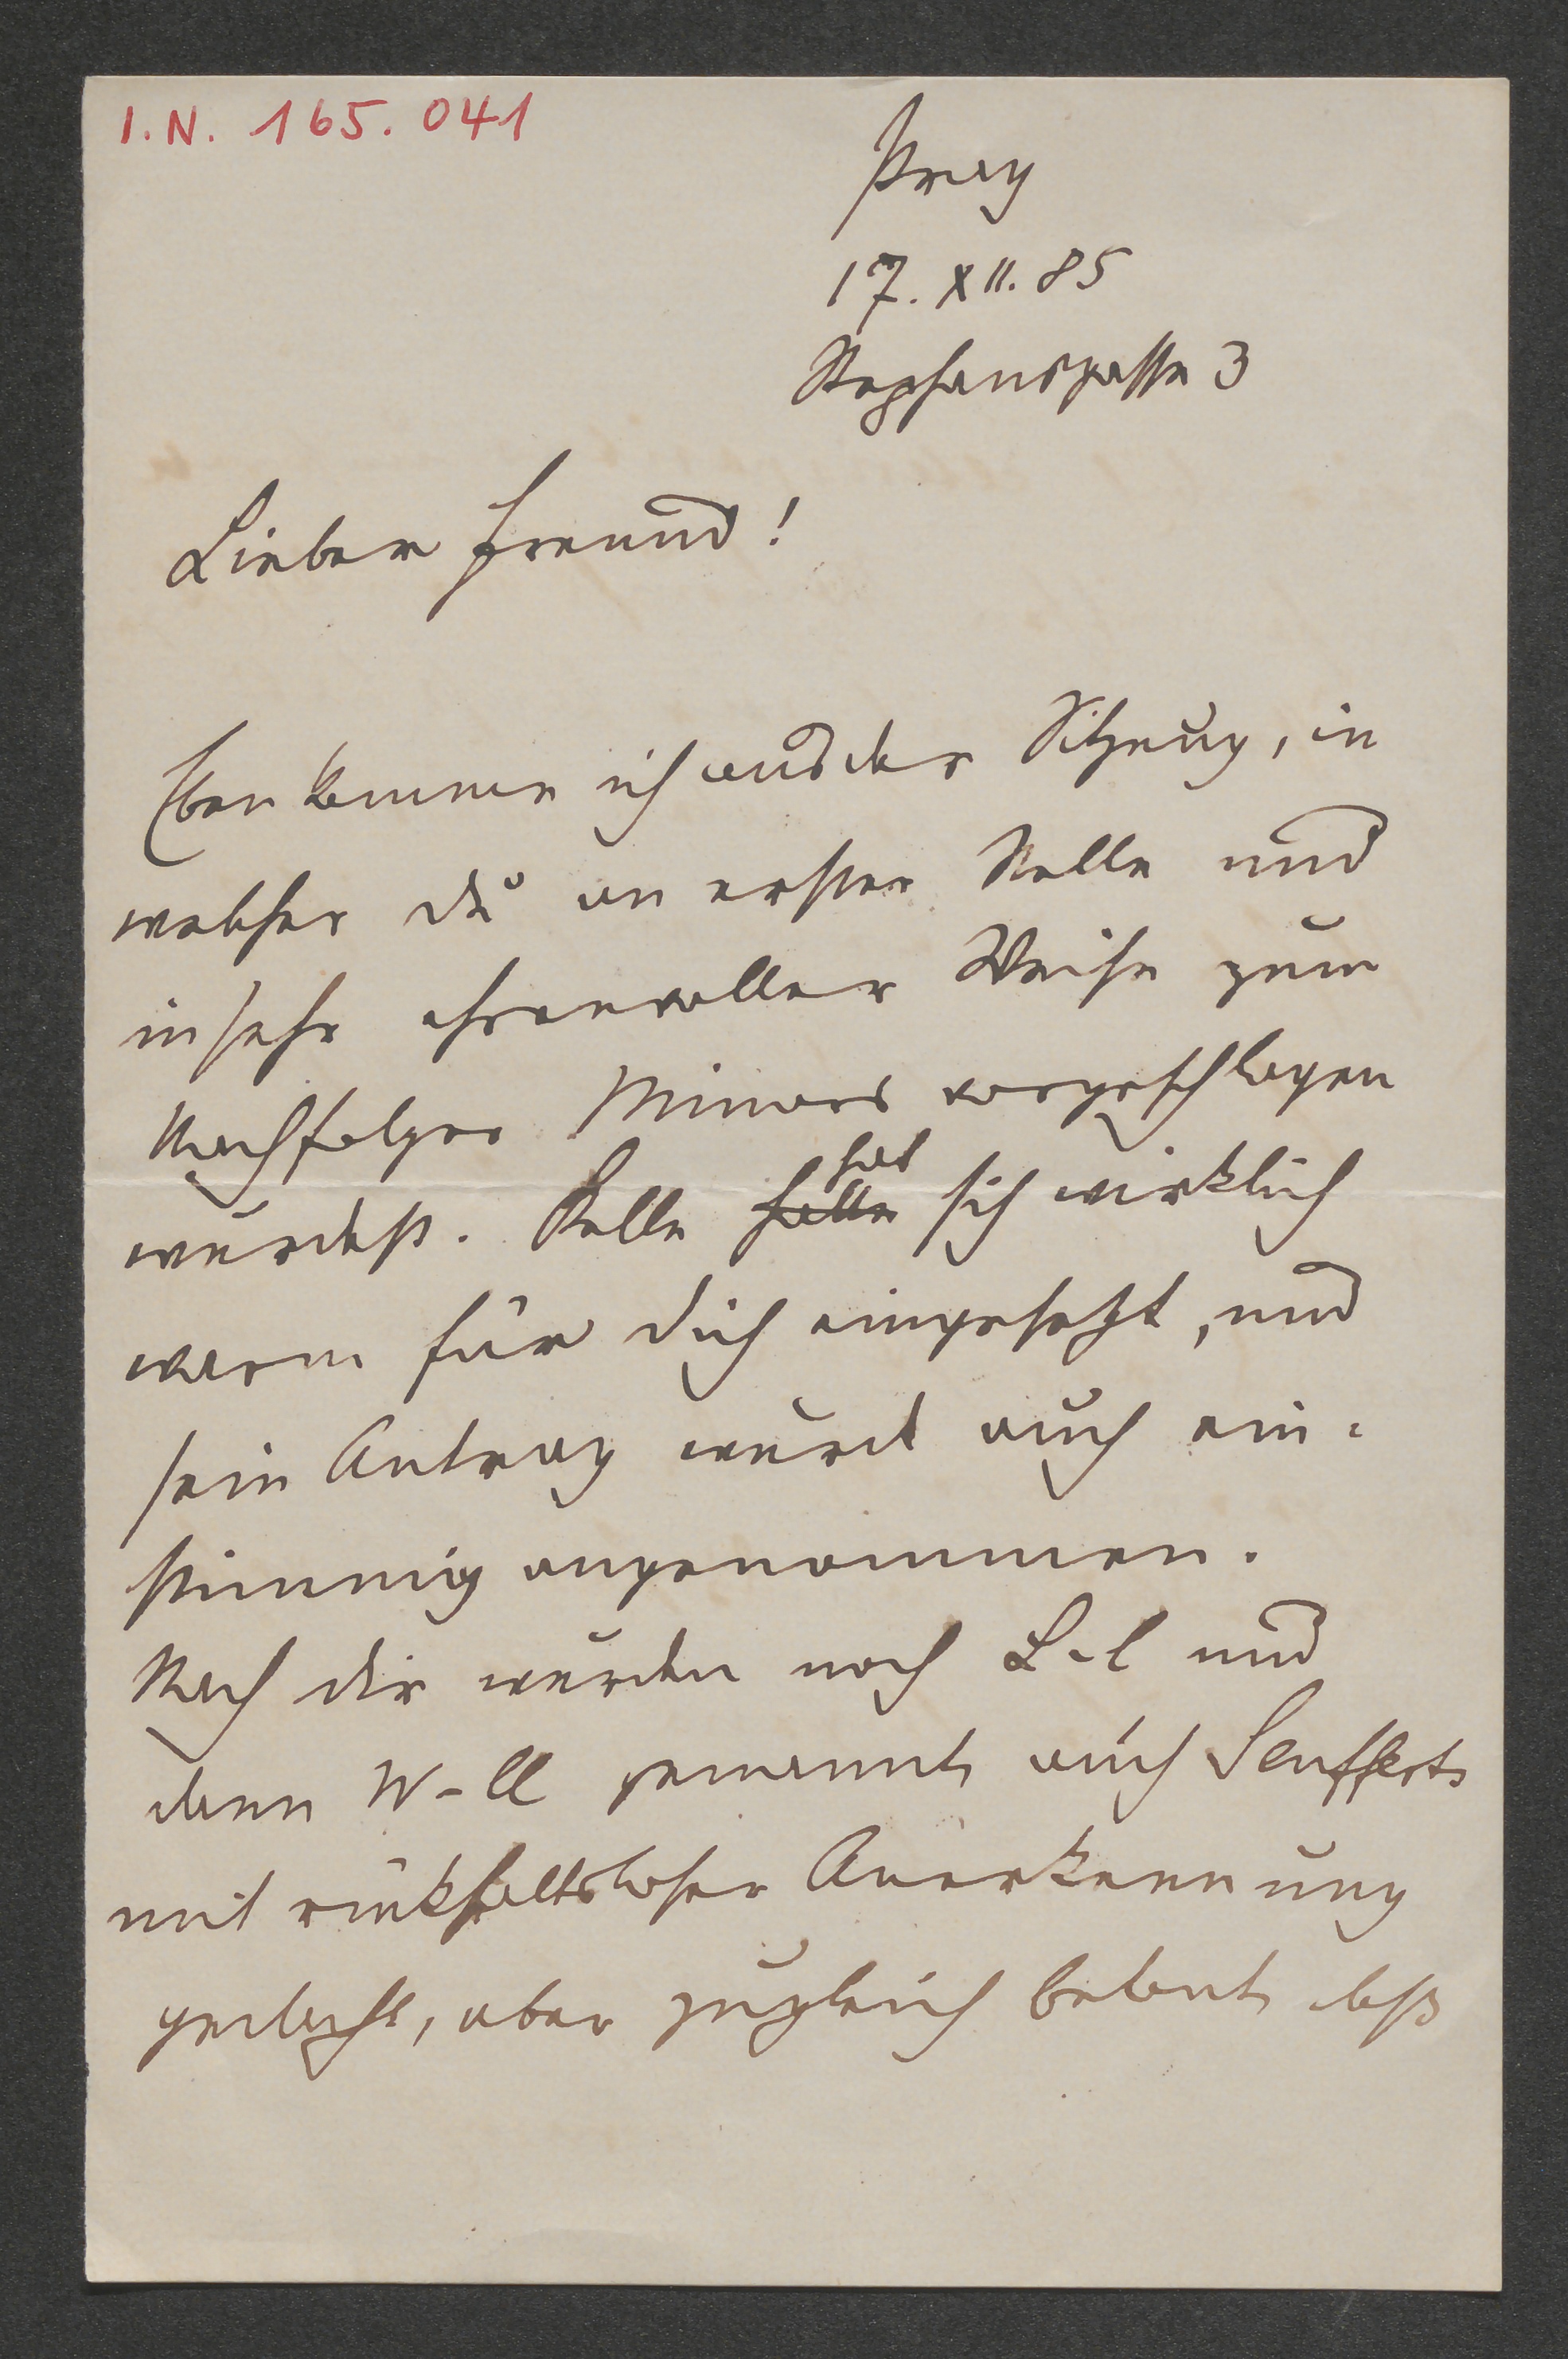 I.N. 165.041
Prag
17. XII. 85
Stephansgasse 3
Lieber Freund!
Eben komme ich aus der Sitzung, in
welcher du an erster Stelle und
in sehr ehrenvoller Weise zum
Nachfolger Minors vorgeschlagen
wurdest. Kelle hatte hat sich wirklich
warm für dich eingesetzt, und
sein Antrag wurde auch ein-
stimmig angenommen.
Nach dir wurden noch L-l und
dann W-ll genannt auch Seufferts
mit rückhaltsloser Anerkennung
gedacht, aber zugleich betont dass